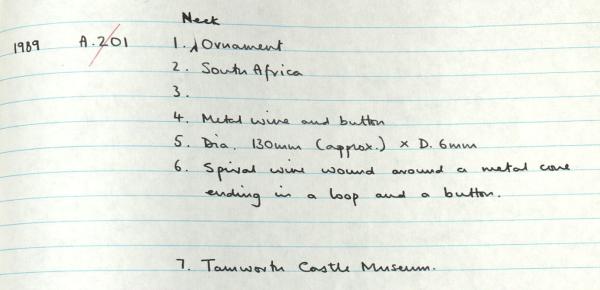 Neck
1989 A.201 1. Ornament
2. South Africa
3.
4. Metal wire and button
5. Dia. 130mm (approx.) × D. 6mm
6. Spiral wire wound around a metal core
ending in a loop and a button.
7. Tamworth Castle Museum.